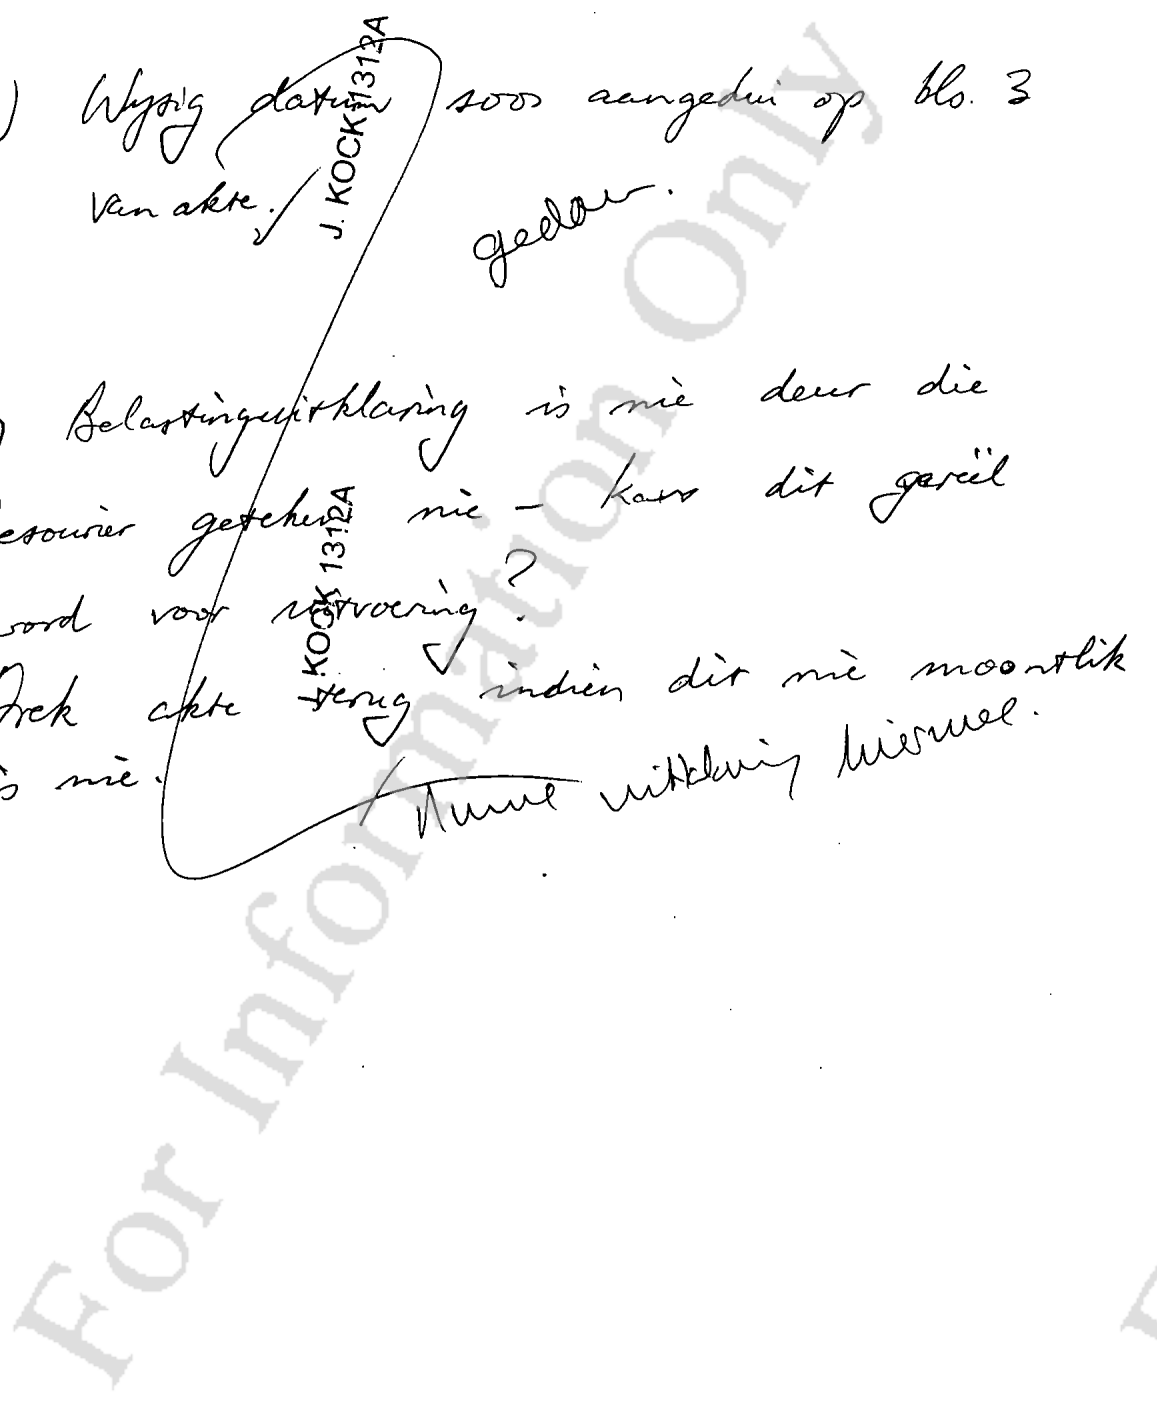 ) Wysig datum soos aangedui op bls. 3
van akte.
gedaan.
) Belastinguitklaring is nie deur die
esourier geteken nie - kan dit gereël
word voor uitvoering?
Trek akte terug indien dit nie moontlik
is nie.
Nuwe uitklaring hiermee.
J. KOCK 1312A
J. KOCK 1312A
For Information Only